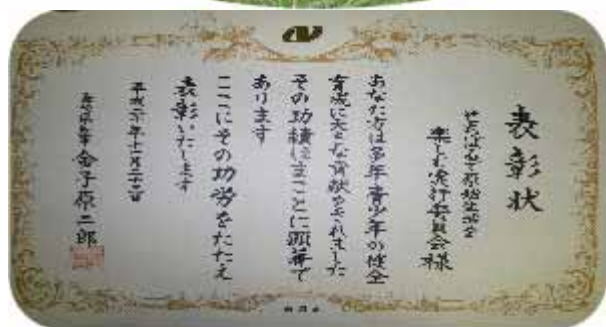 表彰状
せたばる子原始生活を
楽しむ実行委員会様
あなた方は多年青少年の健全
育成に大きな貢献をされました
その功績はまことに顕著で
あります
ここにその功労をたたえ
表彰いたします
平成二十年十一月二十二日
長崎県知事 金子原二郎